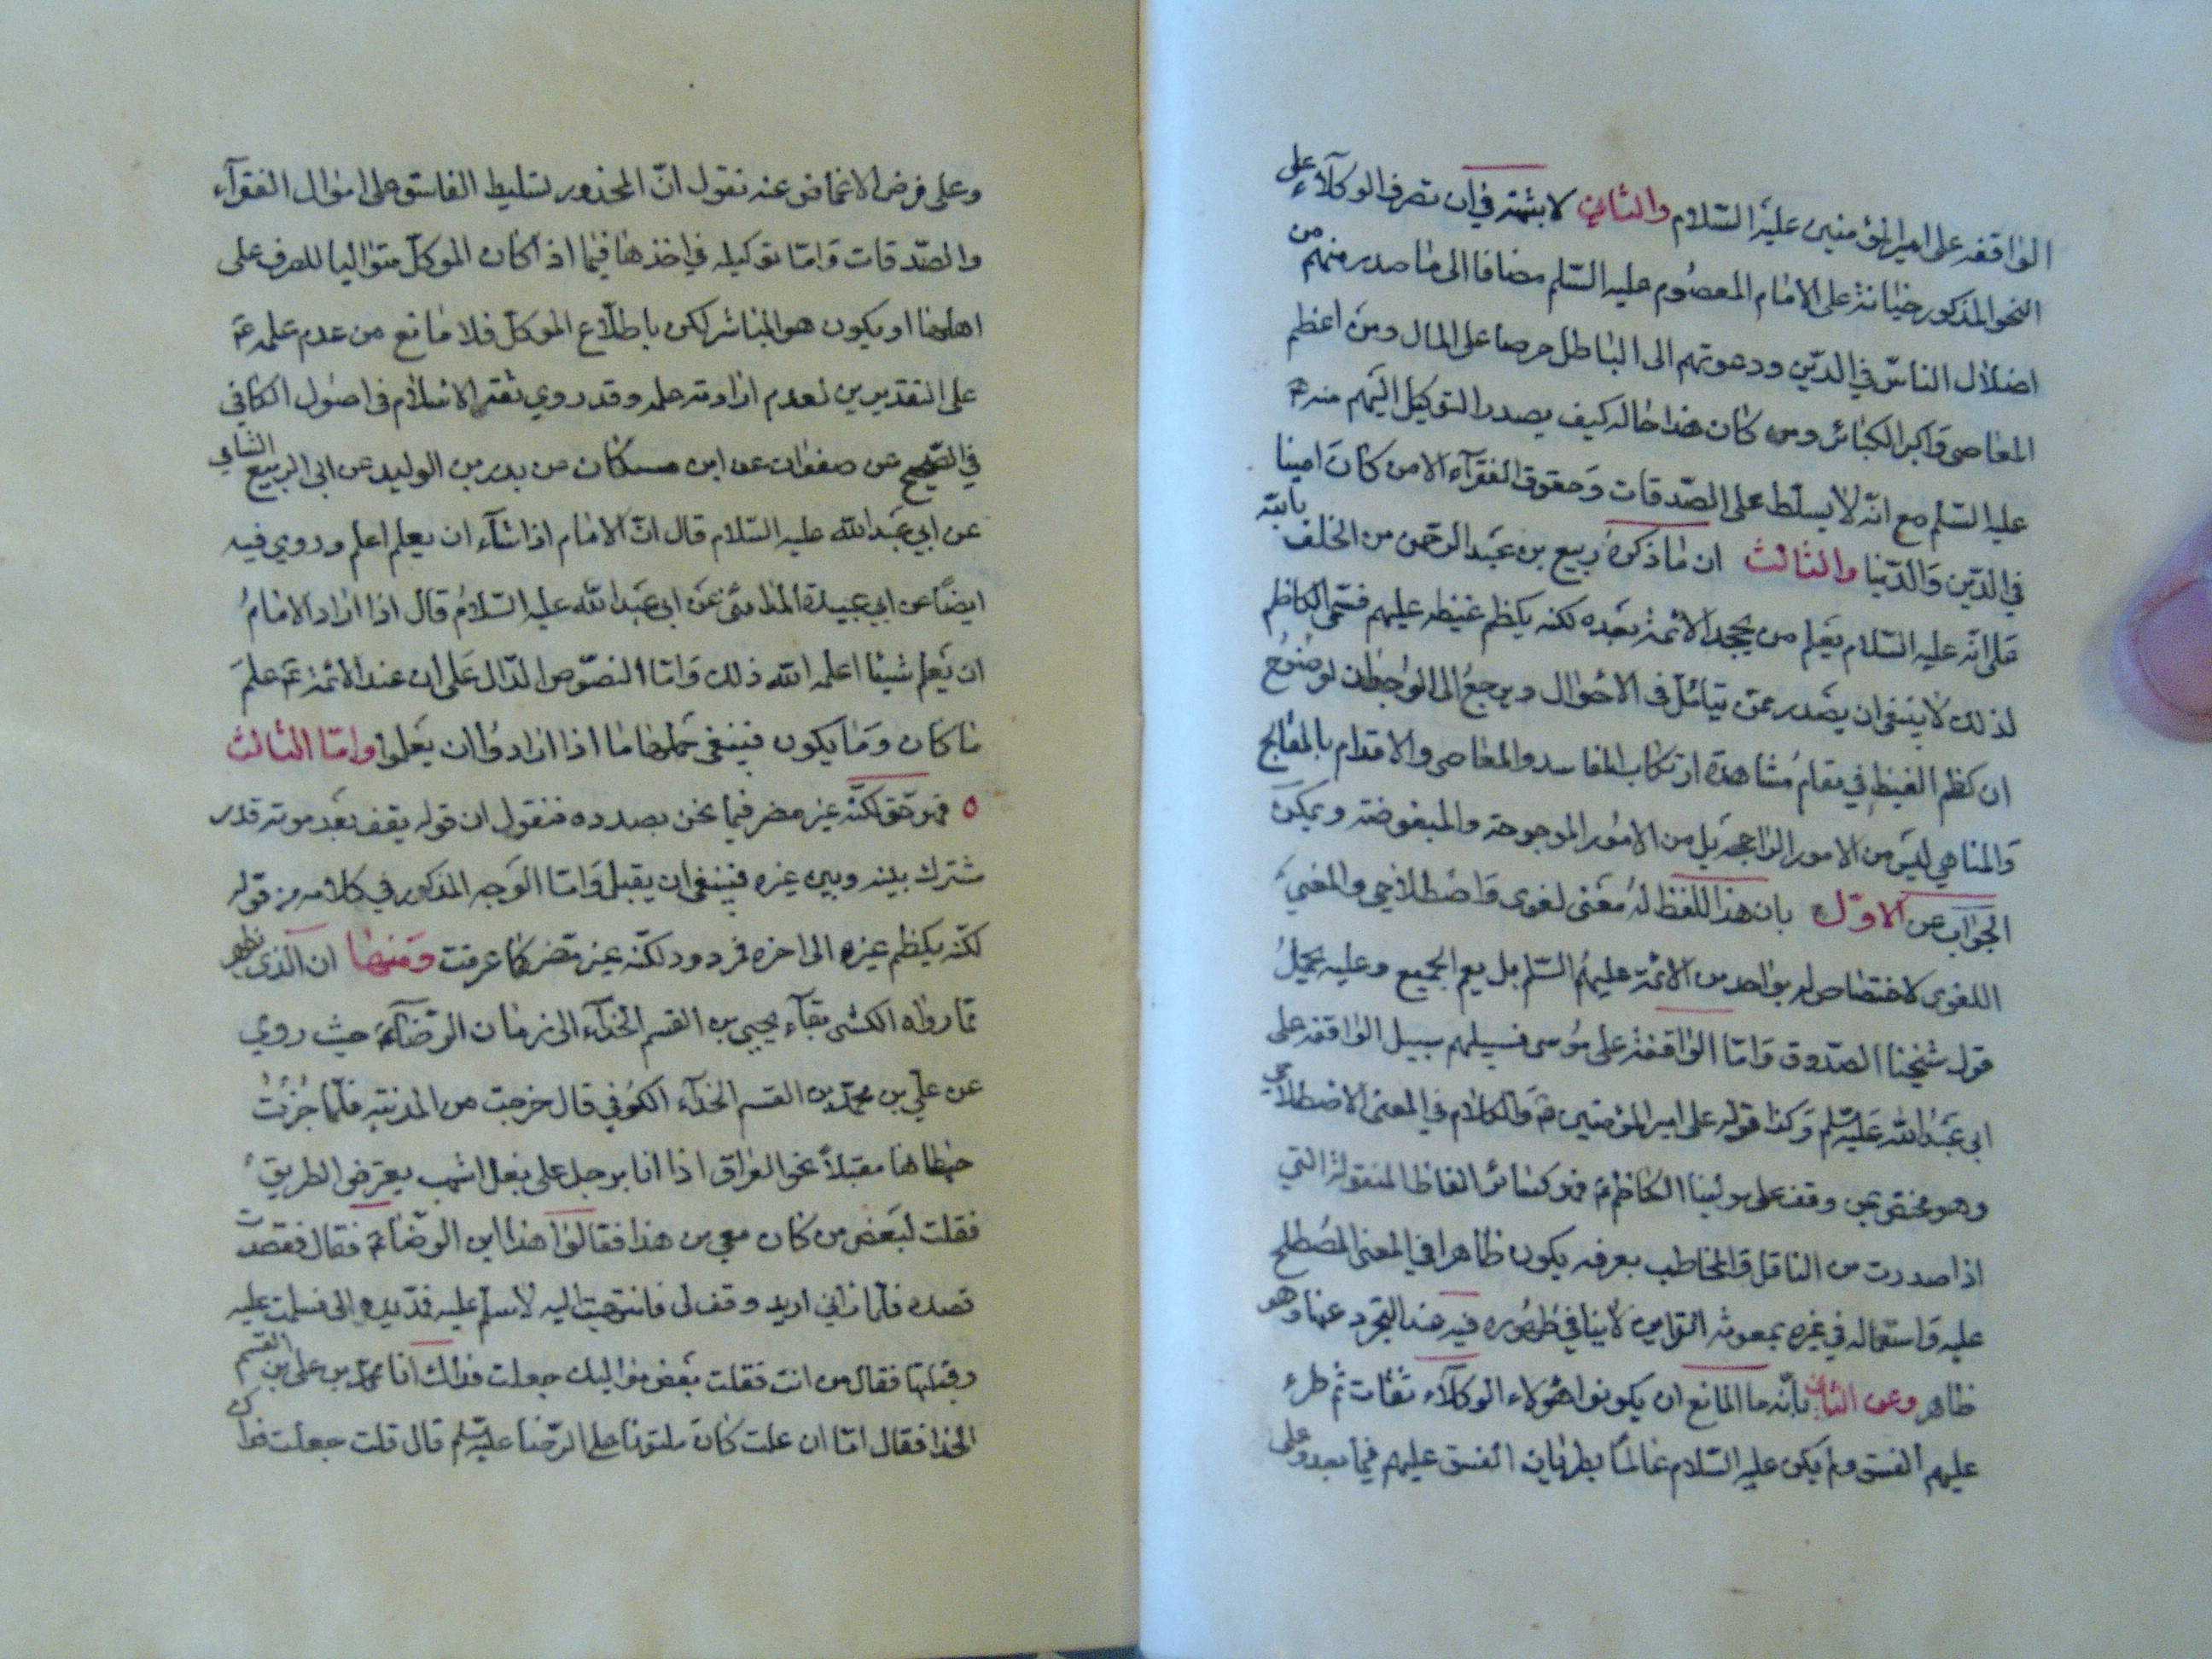 الواقفه على امير المؤمنين عليه السّلام والثاني لا شبهة في ان تصرف الوكلآء على
النحو المذكور خيانة على الامام المعصوم عليه السّلم مضافا الى ما صدر منهم من
اضلال الناس في الدّين ودعوتهم الى الباطل حرصا على المال ومن اعظم
المعاصي واكبر الكبائر ومن كان هذا حاله كيف يصدر التوكيل اليهم منه
عليه السّلم مع انّه لا يسلّط على الصّدقات وحقوق الفقرآء الا من كان امينا
في الدّين والدّنيا والثالث ان ما ذكره ربيع بن عبد الرّحمن من الخلف بابيّه
على انّه عليه السّلام يعلم من يجحد الائمة بعده لكنه يكظم غيظه عليهم فسمّى الكاظم
لذلك لا ينبغي ان يصدر عمّن يتأمّل في الاحوال ويرجع الى الواجدان لوضوح
ان كظم الغيظ في مقام مشاهدة ارتكاب المفاسد والمعاصي والاقدام بالمقابح
والمناهي ليس من الامور الراجحه بل من الامور المرجوحة والمبغوضة ويمكن
الجواب عن الاوّل بان هذا اللفظ له معنى لغوى واصطلاحي والمعنى
اللغوي لا اختصاص له بواحد من الائمة عليهم السّلم بل يعم الجميع وعليه يحمل
قول شيخنا الصّدوق وامّا الواقفة على موسى فسبيلهم سبيل الواقفه على
ابي عبد الله عليه السّلم وكذا قوله على امير المؤمنين ع والكلام في المعنى الاصطلاحي
وهو مختص بمن وقف على مولينا الكاظم ع فهو كسائر الفاظ المنقولة التي
اذا صدرت من الناقل والمخاطب بعرفه يكون ظاهرا في المعنى المصطلح
عليه واستعماله في غيره بمعونة القرآين لا ينافي ظهوره فيه عند التجرد عنها وهو
ظاهر وعن الثاني بأنّه ما المانع ان يكونوا هؤلاء الوكلآء ثقات ثم طرء
عليهم الفسق ولم يكن عليه السّلام عالما بطريان الفسق عليهم فيما بعد وعلى
وعلى فرض الاغماض عنه نقول انّ المحذور تسليط الفاسق على اموال الفقرآء
والصّدقات وامّا توكيله في اخذها فيما اذا كان الموكل متواليا للصرف على
اهلها او يكون هو المباشر لكن باطلاع الموكل فلا مانع من عدم علمه ع
على التقديرين لعدم ارادته علمه وقد روي ثقة الاسلام في اصول الكافي
في الصّحيح عن صفوان عن ابن مسكان عن بدر بن الوليد عن ابي الربيع الشامي
عن ابي عبد الله عليه السّلام قال انّ الامام اذا شآء ان يعلم اعلم وروي فيه
ايضًا عن ابي عبيدة المدائني عن ابي عبد الله عليه السّلام قال اذا اراد الامام
ان يعلم شيئا اعلمه الله ذلك وامّا النصّوص الدّال على ان عند الائمة ع علم
ما كان وما يكون فينبغي حملها ما اذا ارادوا ان يعلموا وامّا الثالث
فهو حق لكنّه غير مضر فيما نحن بصدده فنقول ان قوله يقف بعد موته قدر
مشترك بينه وبين غيره فينبغي ان يقبل وامّا الوجه المذكور في كلامه من قوله
لكنّه يكظم غيره الى اخره فمردود لكنّه غير مضر كما عرفت ومنها ان الذى يظهر
ممّا رواه الكشى بقآء يحيى بن القسم الحذآء الى زمان الرّضا ع حيث روي
عن علي بن محمّد بن القسم الحذآء الكوفي قال خرجت من المدنية فلمّا جزت
حيطانها مقبلًا نحو العراق اذا انا برجل على بغل اشهب يعترض الطريق
فقلت لبعض من كان معي من هذا فقالوا هذا ابن الرضا ع فقال فقصدت
قصده فلمّا رآني اريده وقف لي فانتهيت اليه لاسلّم عليه فمدّ يده الى فسلمت عليه
وقبلتها فقال من انت فقلت بعض مواليك جعلت فداك انا محمّد بن على بن القسم
الحذا فقال امّا ان عمّك كان ملتويا على الرّضا عليه السّلم قال قلت جعلت فداك